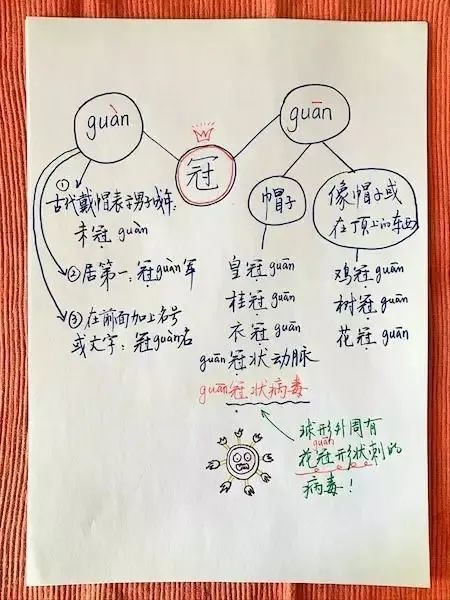 guàn
guān
冠
①
古代戴帽表示男子成年:
未冠 guàn
②居第一:冠guàn军
③在前面加上名号
或文字:冠guàn名
帽子
皇冠guān
桂冠guān
衣冠guān
guān冠状动脉
guān冠状病毒
像帽子或
在顶上的东西
鸡冠guān
树冠guān
花冠guān
球形外周有
guān
花冠形状刺的
病毒!